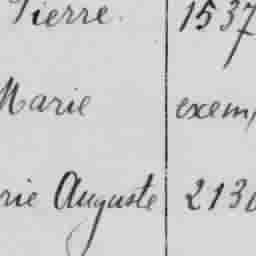 Pierre. 1537
Marie exem
rie Auguste 213